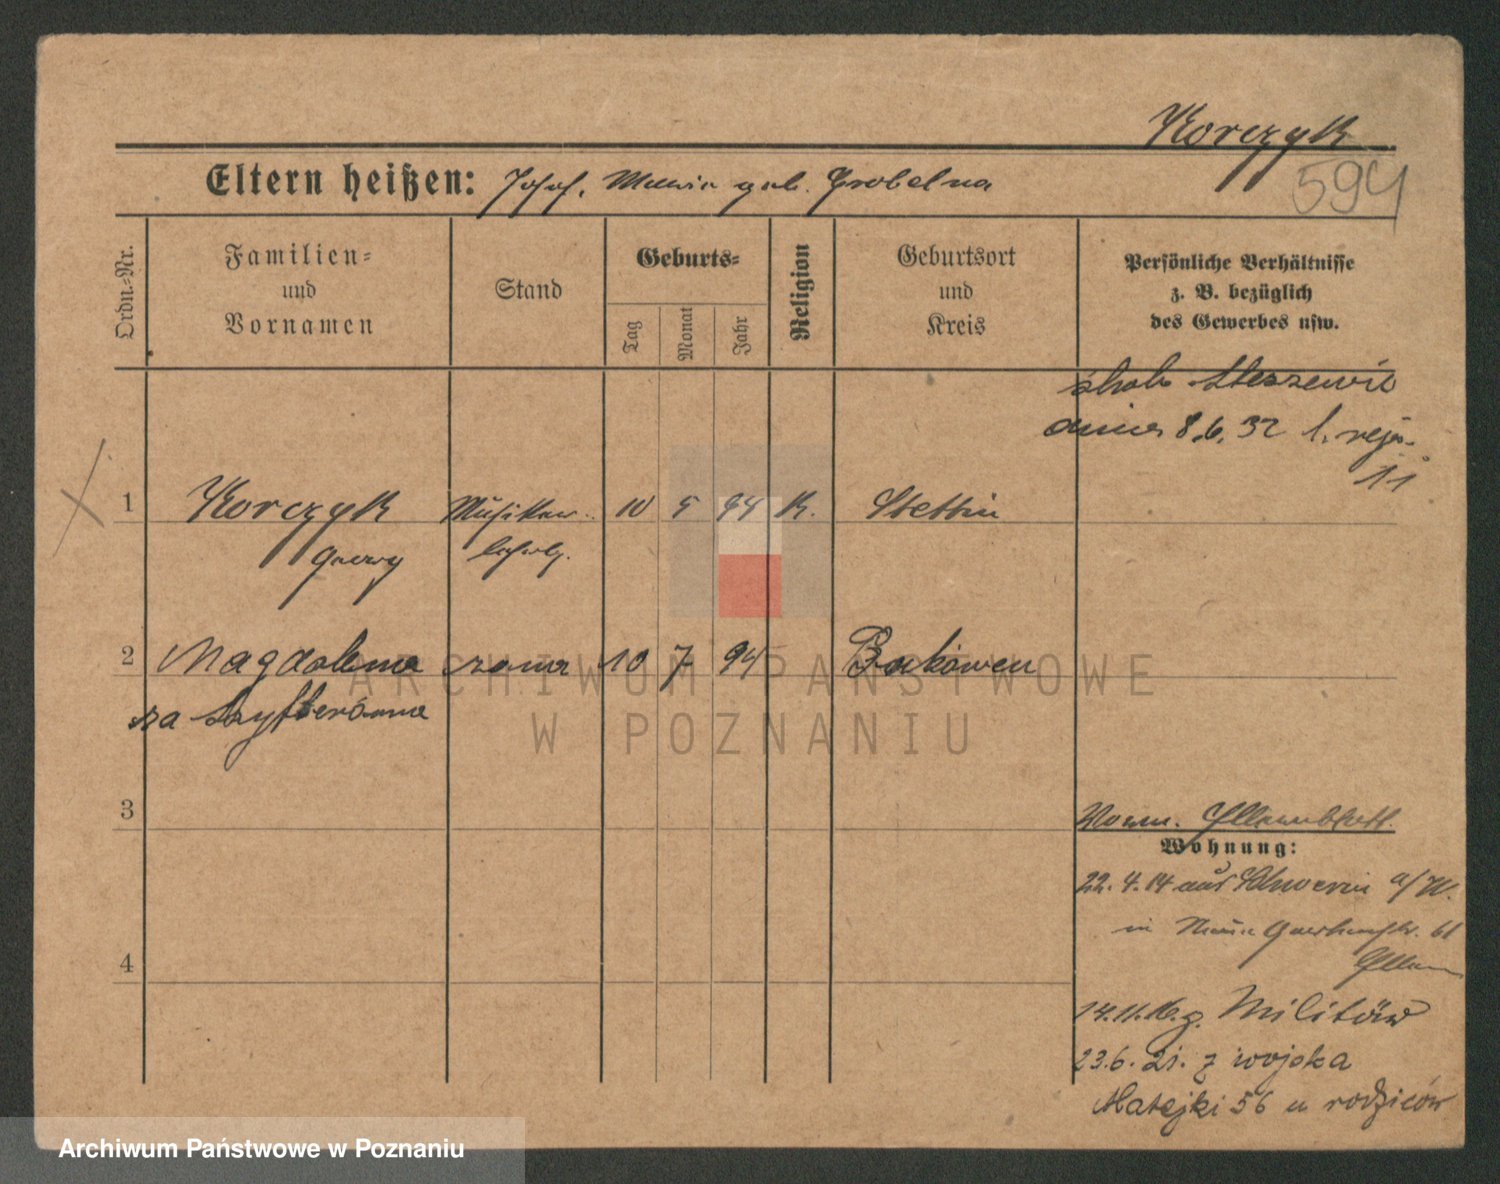 Korczyk
594
Eltern heißen: Josef, Maria geb. Grobelna
Ordn.-Nr.
Familien- und Vornamen
Stand
Geburts-
Tag
Monat
Jahr
Religion
Geburtsort und Kreis
Persönliche Verhältnisse
z. B. bezüglich
des Gewerbes usw.
8.6.32 l. rej.
11
1 Korczyk Musiker- 10 5 94 K. Stettin
Georg
2 Magdalena żona 10 7 94
za
3
Wohnung:
22.4.14 aus Schwerin a/W.
in
4
14.11.16. z. Militär
23.6.21. z wojska
Matejki 56 u rodziców
ARCHIWUM PAŃSTWOWE
W POZNANIU
Archiwum Państwowe w Poznaniu